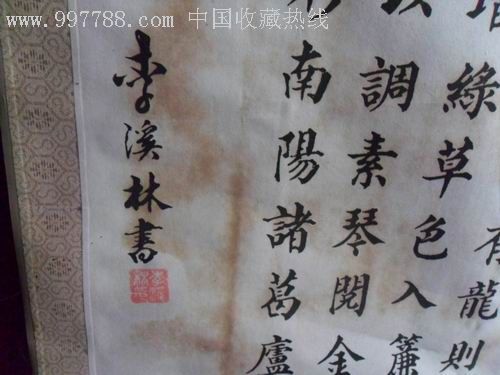 www.997788.com 中国收藏热线
有龍則
綠草色入簾
調素琴閱金
南陽諸葛廬
李溪林書